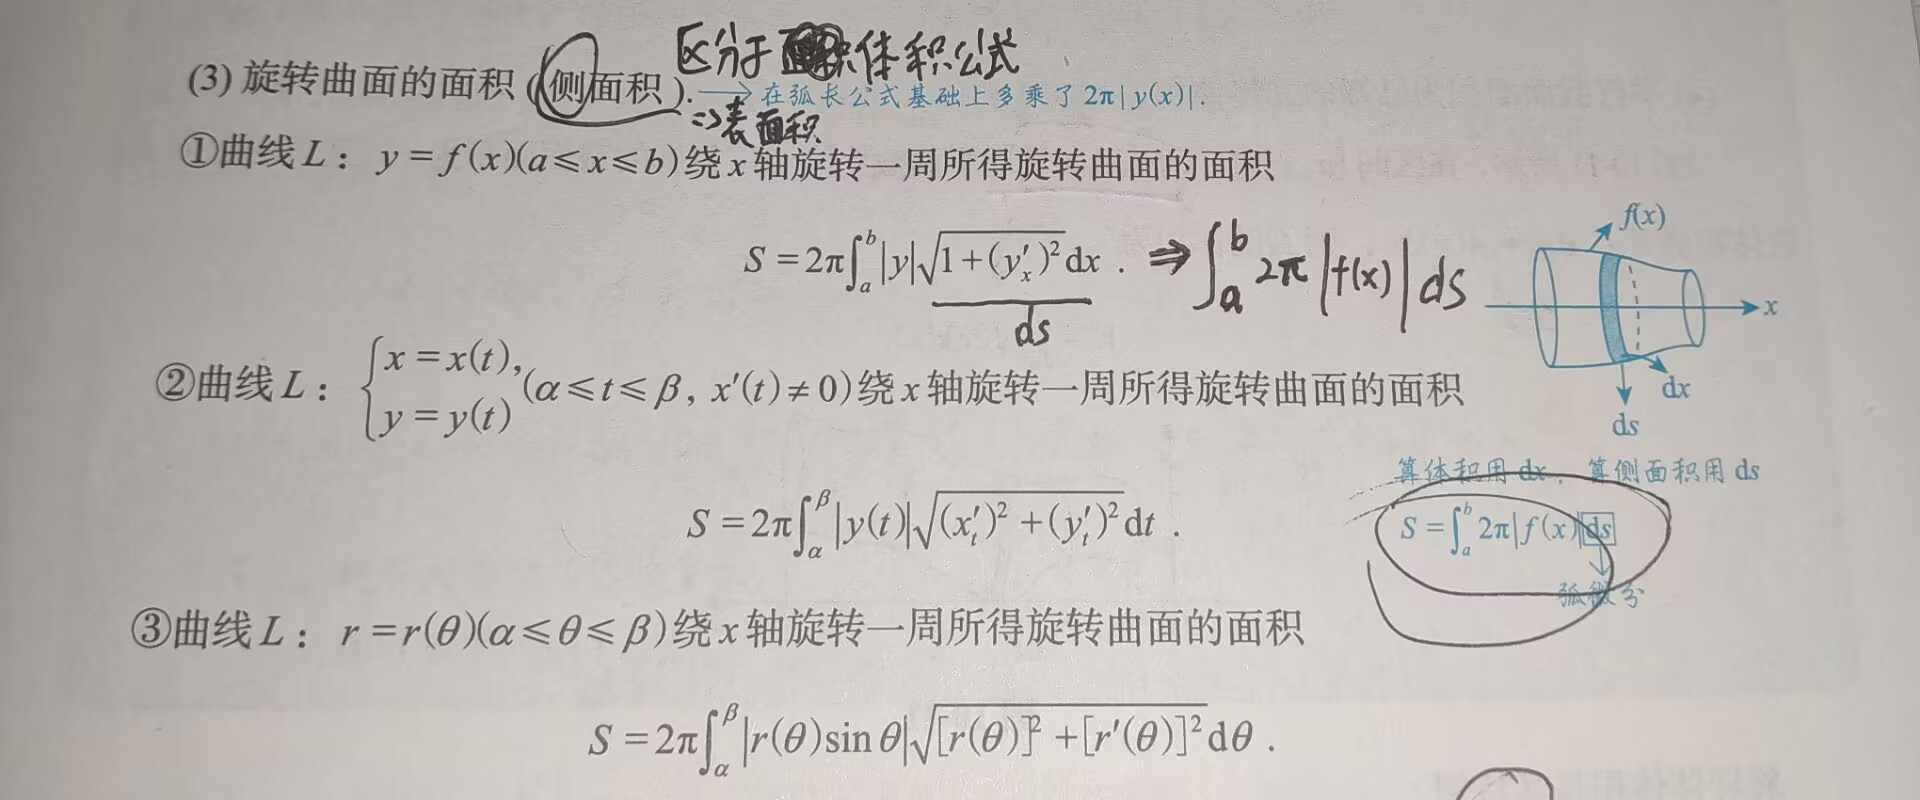 区分于 体积公式
(3) 旋转曲面的面积 (侧面积). → 在弧长公式基础上多乘了 2π|y(x)|.
=> 表面积
①曲线 L： y = f(x)(a ≤ x ≤ b) 绕 x 轴旋转一周所得旋转曲面的面积
S = 2π∫_a^b |y|√(1 + (y′_x)²) dx . ⇒ ∫_a^b 2π |f(x)| ds
ds
f(x)
x
dx
ds
②曲线 L： { x = x(t), y = y(t) (α ≤ t ≤ β, x′(t) ≠ 0) 绕 x 轴旋转一周所得旋转曲面的面积
算体积用 dx, 算侧面积用 ds
S = 2π∫_α^β |y(t)|√((x′_t)² + (y′_t)²) dt .
S = ∫_a^b 2π|f(x)|ds
弧微分
③曲线 L： r = r(θ)(α ≤ θ ≤ β) 绕 x 轴旋转一周所得旋转曲面的面积
S = 2π∫_α^β |r(θ)sin θ|√([r(θ)]² + [r′(θ)]²) dθ .